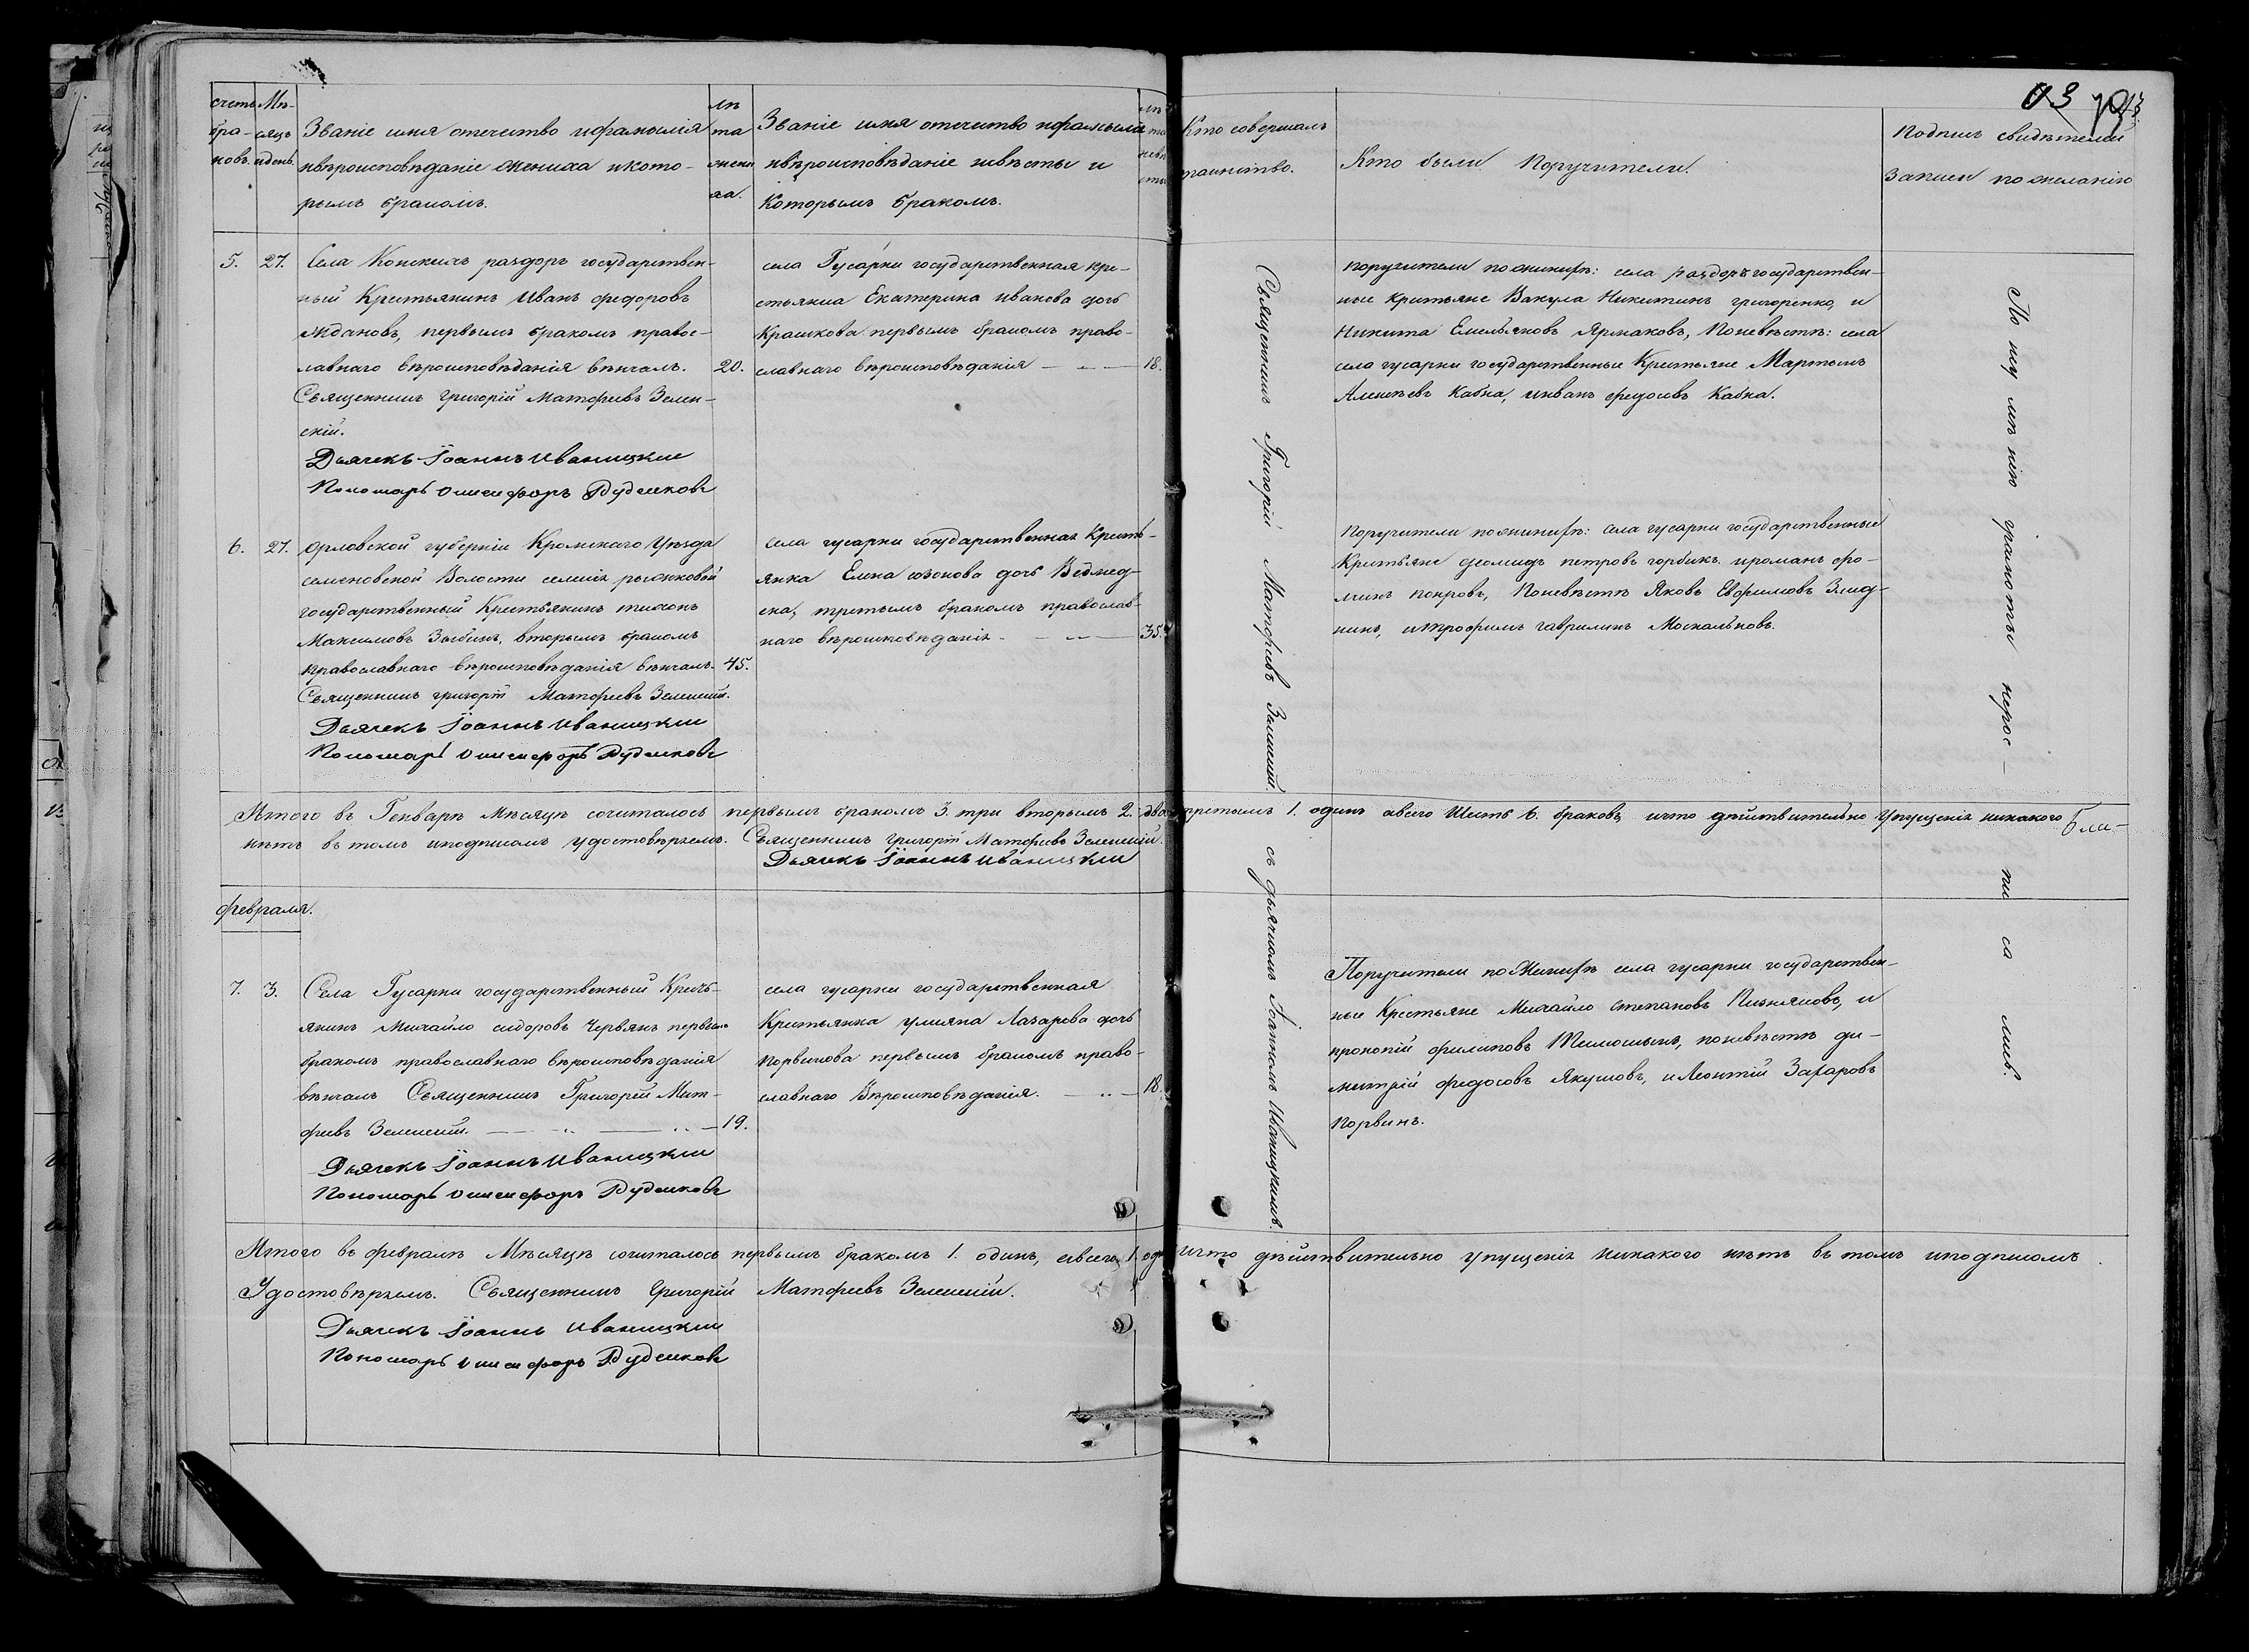 счетъ бра-ковъ.
Мѣ-сяцъ и день.
Званіе имя отечество и фамилія
и вѣроисповѣданіе жениха и кото-
рымъ бракомъ.
лѣ
та
жени
ха.
Званіе имя отечество и фамилія
и вѣроисповѣданіе невѣсты и
которымъ бракомъ.
лѣ
та
невѣ
сты
Кто совершалъ
таинство.
Кто были Поручители.
Подпись свидѣтелей
записи по желанію
5. 27. Села Конскихъ раздоръ государствен-
ный Крестьянинъ Иванъ Федоровъ
Ждановъ, первымъ бракомъ правос-
лавнаго вѣроисповѣданія вѣнчалъ. 20.
Священникъ Григорій Матфеевъ Зелен-
скій.
Дьячекъ Іоаннъ Иваницкій
Пономарь Онисифоръ Рудиковъ
села Гусарки государственная кре-
стьянка Екатерина Иванова дочь
Крашкова первымъ бракомъ право-
славнаго вѣроисповѣданія 18.
поручители по жениху: села раздоръ государствен-
ные крестьяне Вакула Никитинъ григоренко, и
Никита Емельяновъ Ярмаковъ, По невѣстѣ: села
села гусарки государственные Крестьяне Мартынъ
Алексѣевъ Кабка, и иванъ федосовъ Кабка.
6. 27. Орловской губерніи Кромскаго Уѣзда
семеновской Волости селенія рыжковой
государственный Крестьянинъ тихонъ
Максимовъ Зыбинъ, вторымъ бракомъ
православнаго вѣроисповѣданія вѣнчалъ. 45.
Священникъ григорій Матфеевъ Зеленскій.
Дьячекъ Іоаннъ Иваницкій
Пономарь Онисифоръ Рудиковъ
села гусарки государственная Кресть-
янка Елена созонова дочь Ведмед-
ева, третьимъ бракомъ православ-
наго вѣроисповѣданія 35.
Поручители по жениху: села гусарки государственные
Крестьяне деомидъ петровъ горбикъ и романъ фо-
минъ покровъ, По невѣстѣ Яковъ Евфимовъ
и трофимъ гаврилинъ Москальковъ.
Священникъ Григорій Матфеевъ Зеленскій. съ дьячкомъ Іоанномъ Иваницкимъ.
По неу мѣ нію грамоты нерос-
пи са лись.
Итого въ Генварѣ Мѣсяцѣ сочиталось первымъ бракомъ 3. три вторымъ 2. два третьимъ 1. одинъ а всего Шесть 6. браковъ, и что дѣйствительно упущенія никакого
нѣтъ въ томъ и подписомъ удостовѣряемъ. Священникъ Григорій Матфеевъ Зеленскій.
Дьячекъ Іоаннъ Иваницкій
февраля.
7. 3. Села Гусарки государственный Кресть-
янинъ Михайло сидоровъ Червякъ первымъ
бракомъ православнаго вѣроисповѣданія
вѣнчалъ Священникъ Григорій Мат-
феевъ Зеленскій. 19.
Дьячекъ Іоаннъ Иваницкій
Пономарь Онисифоръ Рудиковъ
села гусарки государственная
Крестьянка улияна Лазарева дочь
Корвякова первымъ бракомъ право-
славнаго Вѣроисповѣданія. 18.
Поручители по Жениху села гусарки государствен-
ные Крестьяне Михайло степановъ и
прокопій филиповъ по невѣстѣ ди-
митрій федосовъ Якушовъ, и Леонтій Захаровъ
Корвинъ.
Итого въ февралѣ Мѣсяцѣ сочиталось первымъ бракомъ 1. одинъ, а всего 1. одинъ и что дѣйствительно упущенія никакого нѣтъ въ томъ и подписомъ
Удостовѣряемъ. Священникъ Григорій Матфеевъ Зеленскій.
Дьячекъ Іоаннъ Иваницкій
Пономарь Онисифоръ Рудиковъ